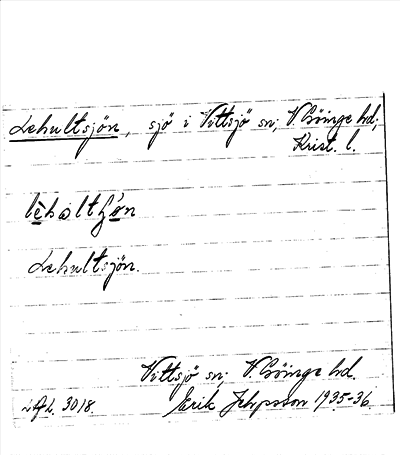 Lehultsjön, sjö i Vittsjö sn; V. Göinge hd;
Krist. l.
Lehultsjön.
Vittsjö sn; V. Göinge hd.
3018. Erik 1935-36.